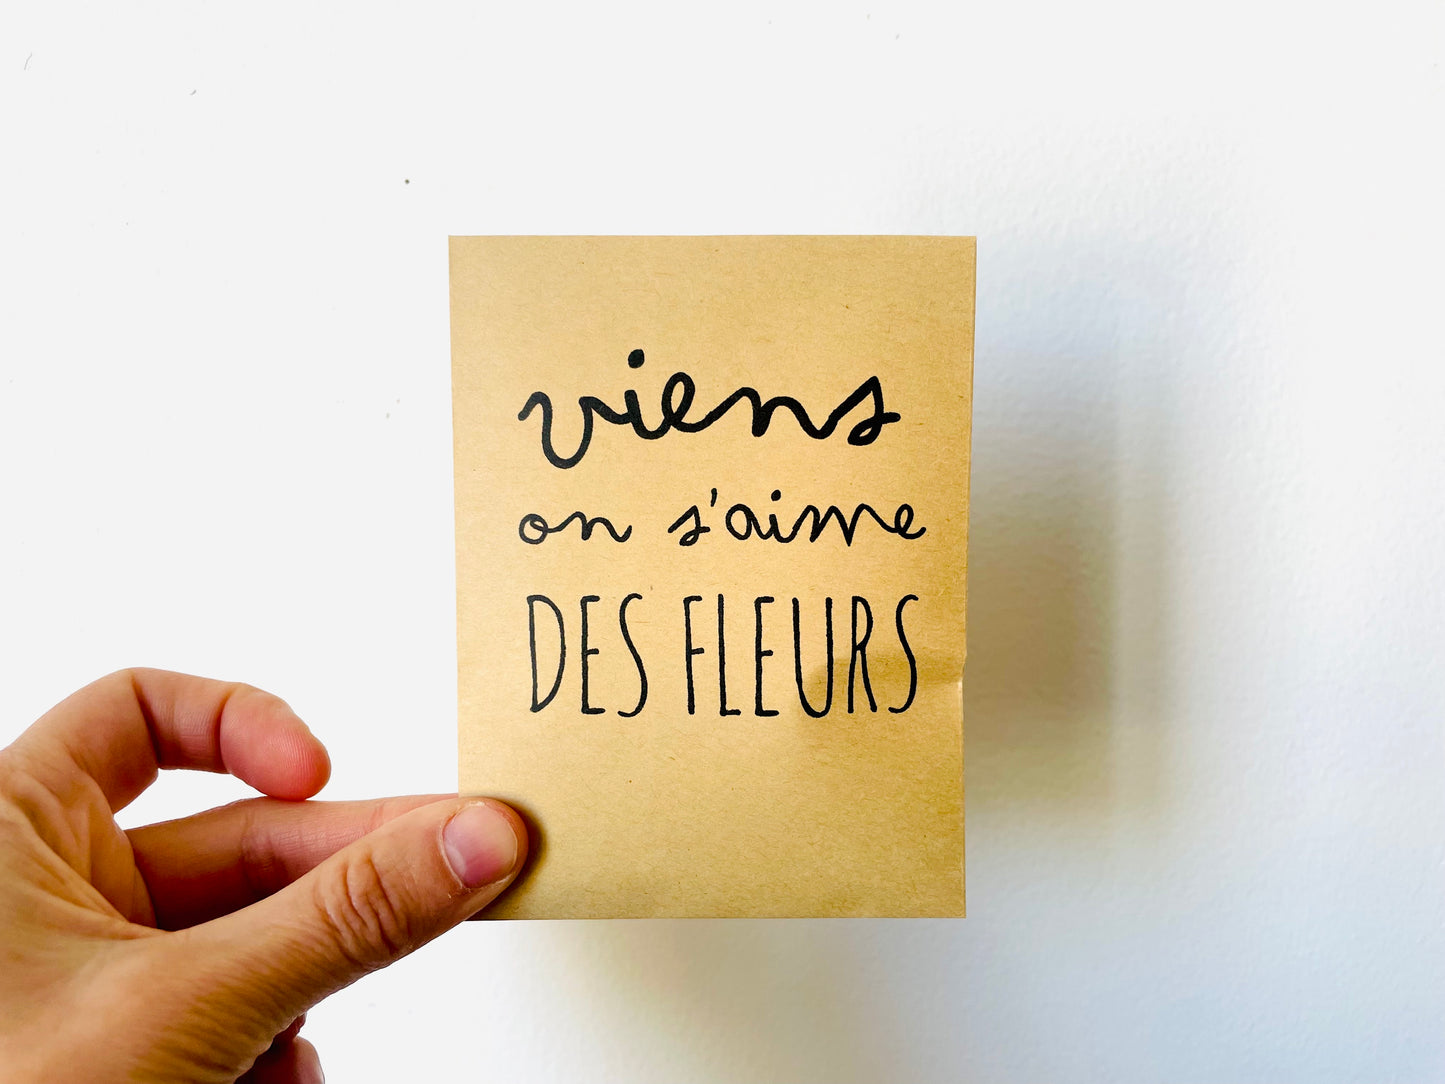 viens
on s'aime
DES FLEURS